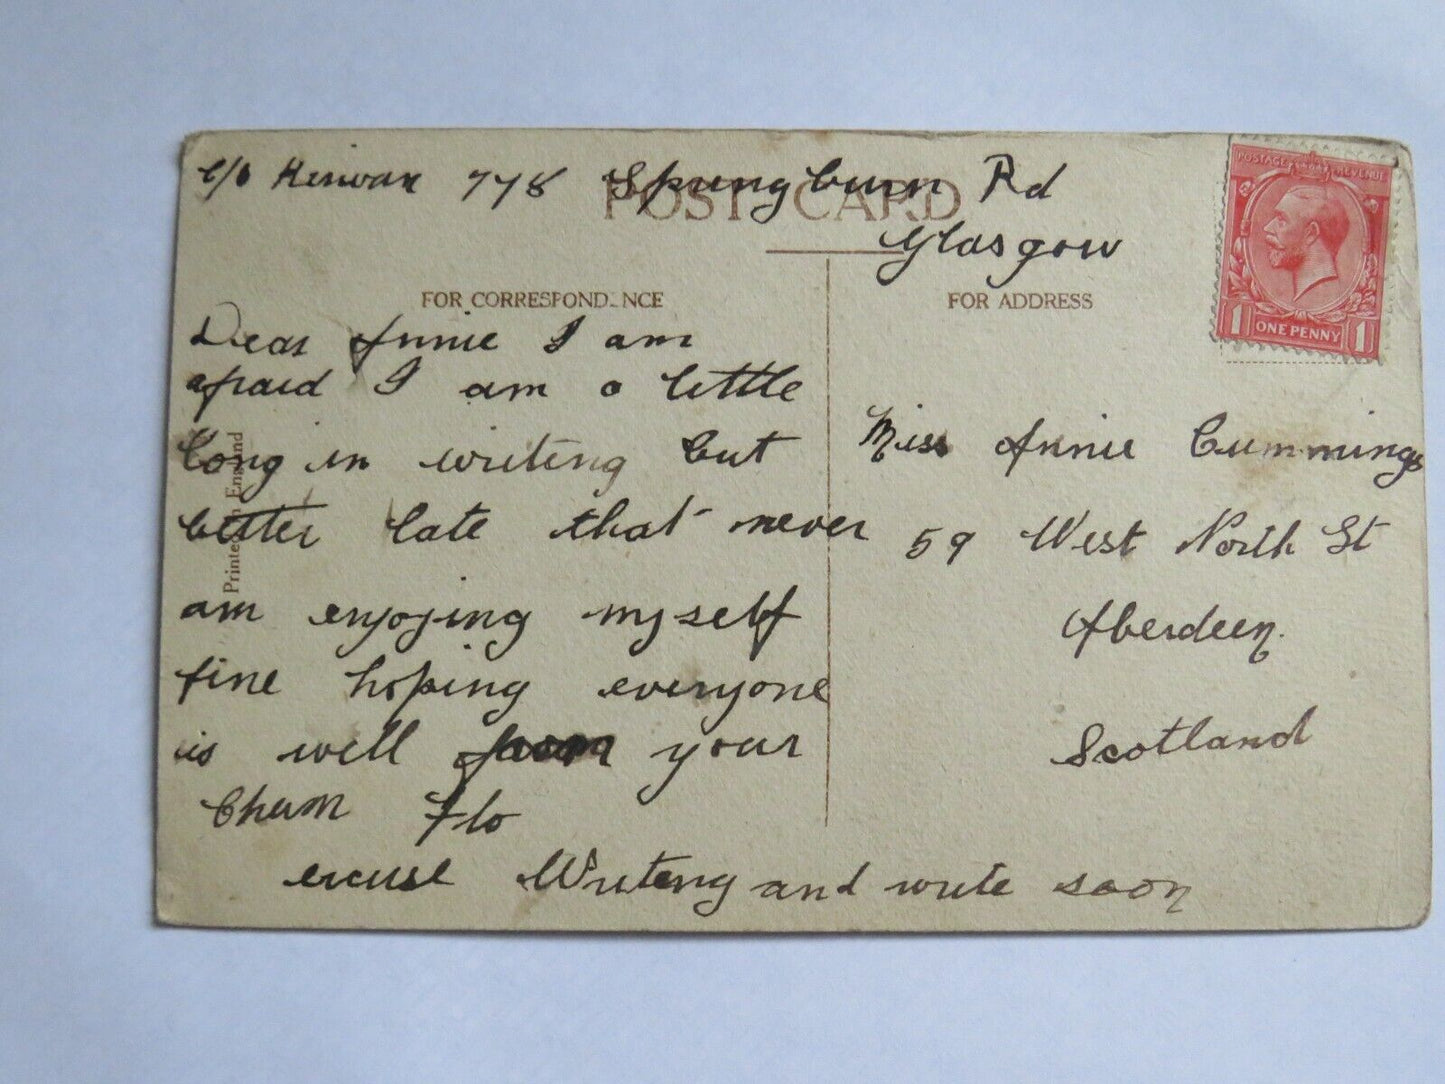 c/o Kerwan 778 Springburn Rd
Glasgow
POST CARD
FOR CORRESPONDENCE
FOR ADDRESS
Printed in England
Dear Annie I am
afraid I am a little
long in writing but
better late that never
am enjoying myself
fine hoping everyone
is well from your
Chum Flo
excuse Writeng and write soon
POSTAGE REVENUE
1 ONE PENNY 1
Miss Annie Cummings
59 West North St
Aberdeen.
Scotland